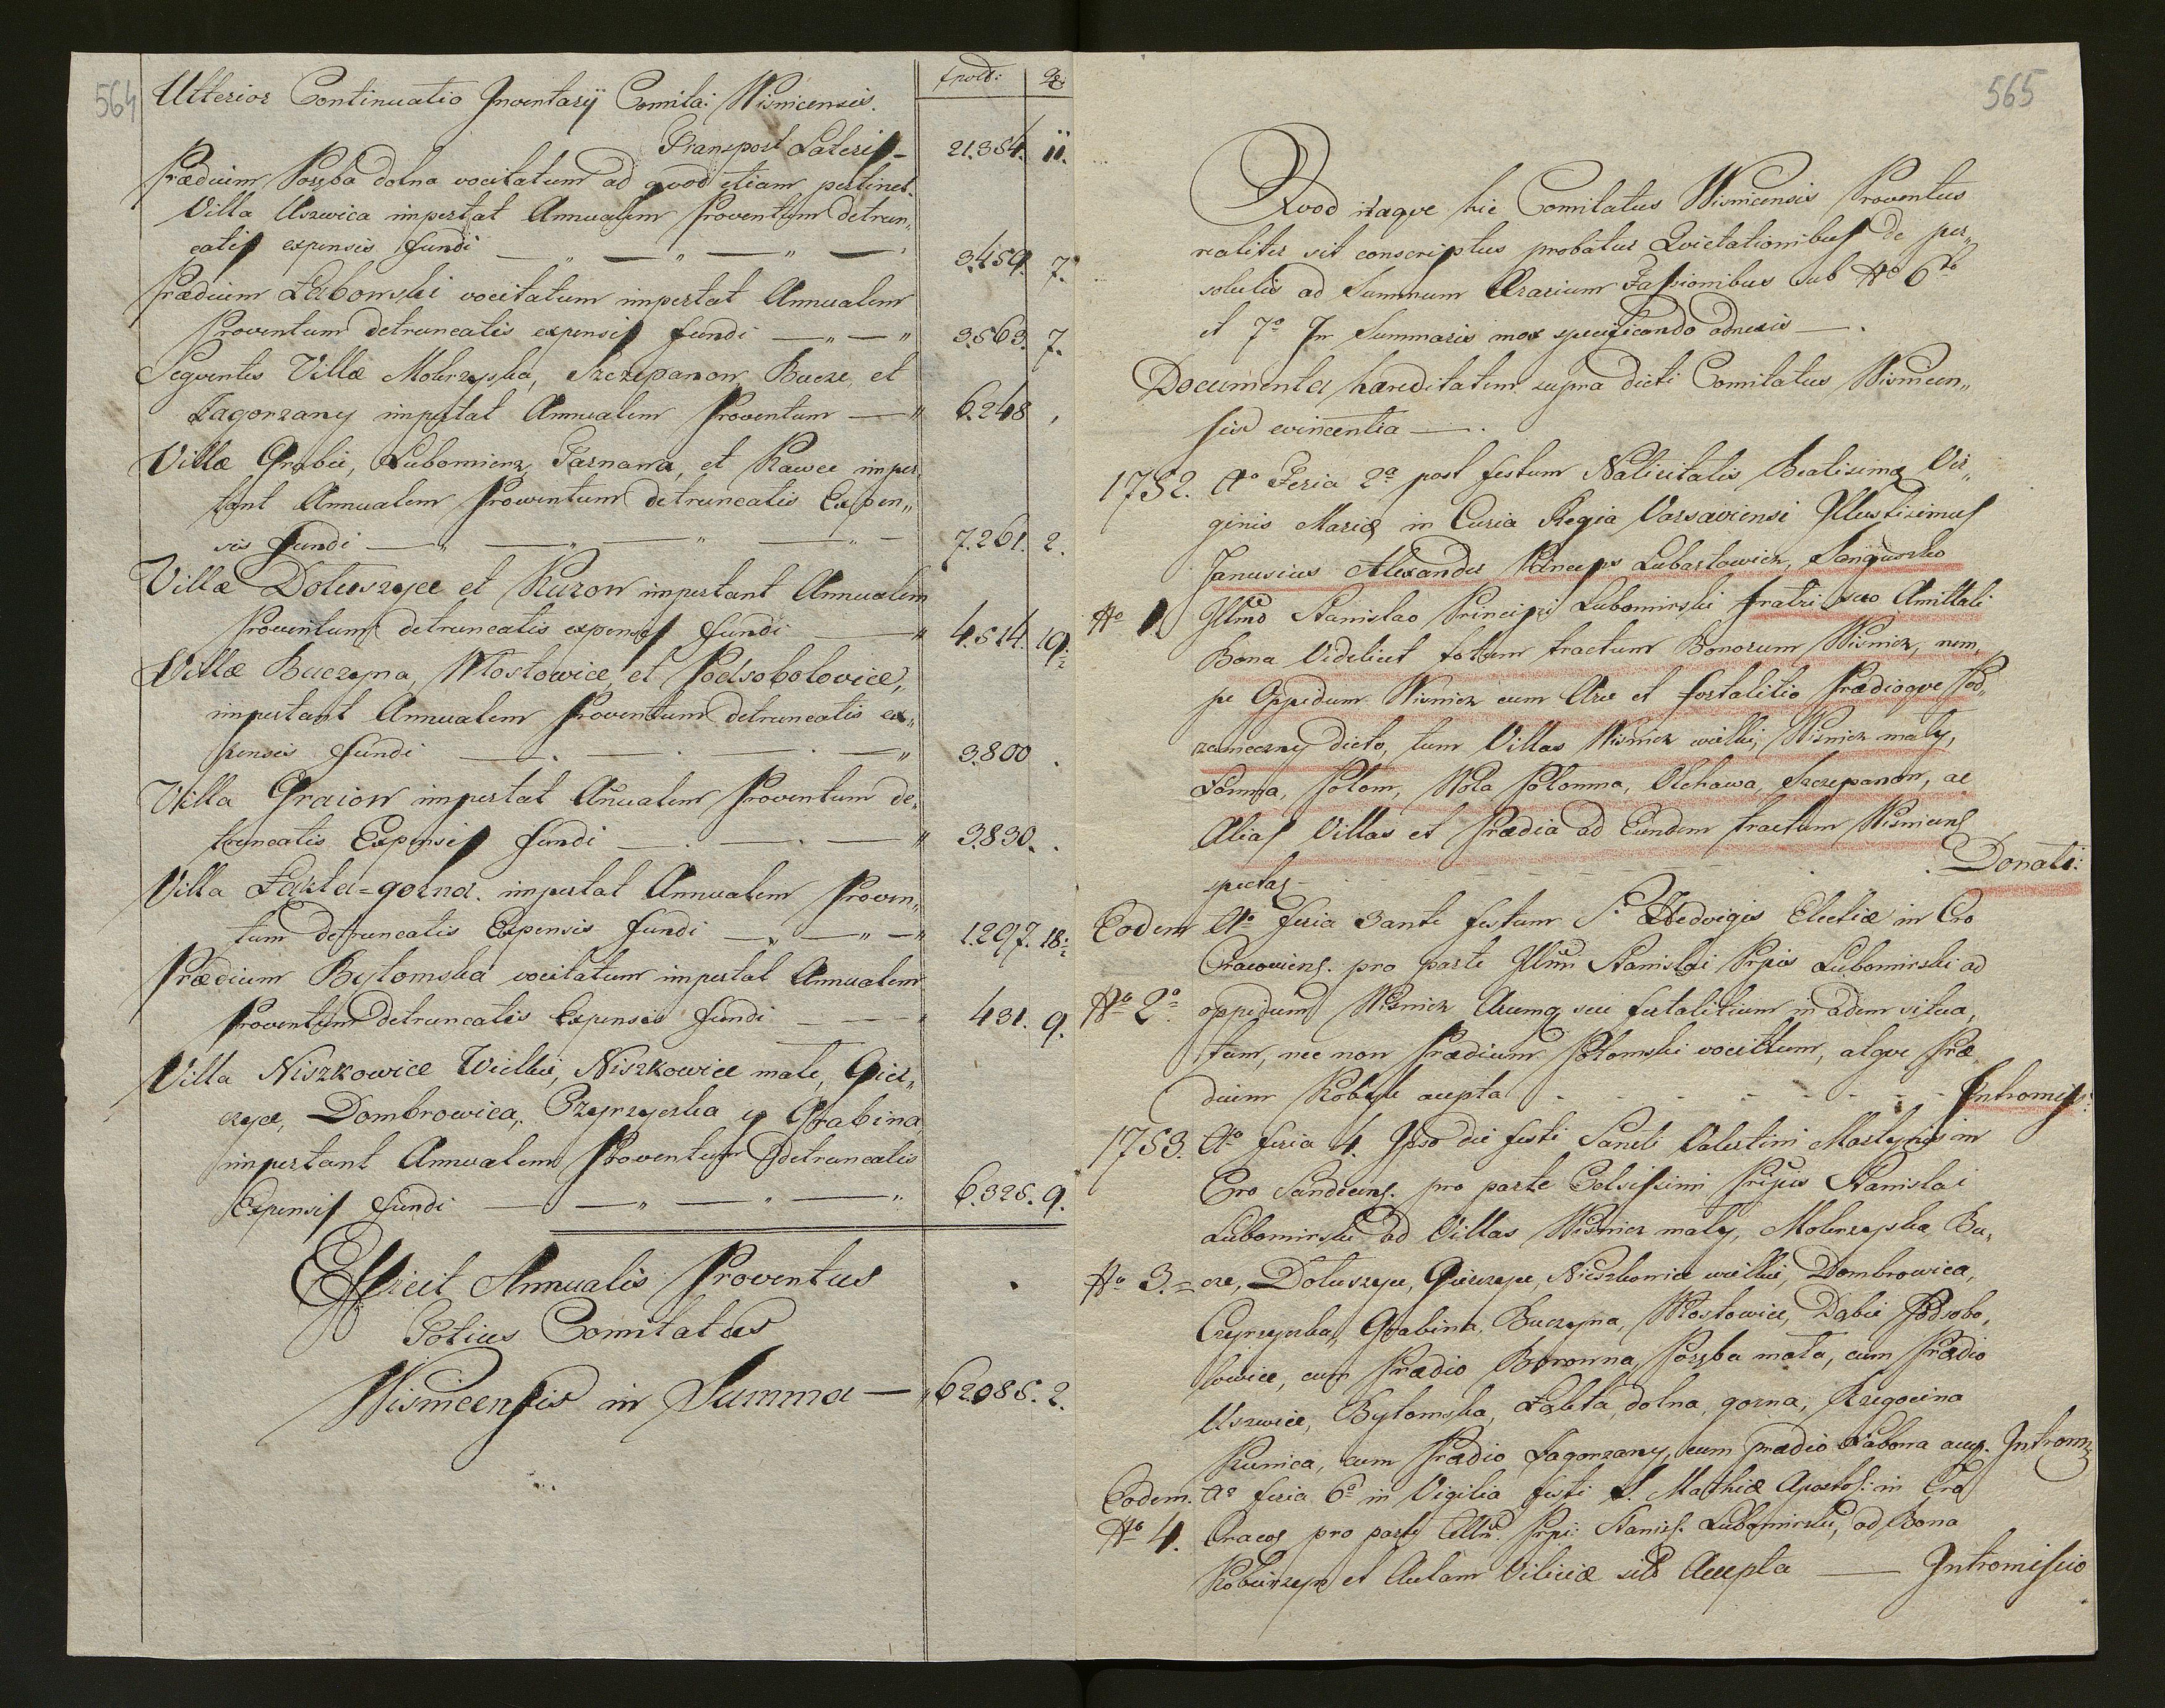 564
Ulterior Continuatio Inventarÿ Comita: Wisnicensis.
fpold: gr:
Transport Lateris – 21.354. ii.
Prædium Poręba dolna vocitatum ad quod etiam pertinet
Villa Uszwica impertat Annualem Proventum detrun„
catis expensis fundi — „ — „ — „ — 3.459. 7.
Prædium Łabomski vocitatum impertat Annualem
Proventum detruncatis expensis fundi — „ — „ 3.563. 7.
Seqventes Villæ Mokrzyska, Szczepanow, Bucze, et
Zagorzany impertat Annualem Proventum — „ 6.248 ,
Villæ Grabie, Lubomierz, Tarnawa, et Rawec imper„
tant Annualem Proventum detruncatis Expen„
sis fundi — „ — „ — „ — „ – 7.261. 2.
Villæ Doluszyce et Kurow impertant Annualem
Proventum detruncatis expensis fundi — „ 4.514. 19.
Villæ Buczyna, Mostowice, et Podsobolowice,
impertant Annualem Proventum detruncatis ex„
pensis fundi — . — . — . — „ 3.800 .
Villa Graiow impertat Añualem Proventum de„
truncatis Expensis fundi — . — . — „ 3.830. .
Villa Łąkta=gorna. impertat Annualem Proven„
tum detruncatis Expensis fundi — „ — „ – „ 1.297. 18.
Prædium Bytomska vocitatum impertat Annualem
Proventum detruncatis Expensis fundi — — „ 431. 9.
Villa Niszkowice Wielkie, Niszkowice małe, Gier„
czyce, Dombrowica, Czyrzyczka y Grabina
impertant Annualem Proventum detruncatis
Expensis fundi — — „ — „ — „ 6.325. 9.
Efficit Annualis Proventus .
Totius Comitatus
Wisnicensis in Summa — „ 62.085. 2.
565
Qvod itaqve hic Comitatus Wisnicensis Proventus
realiter sit conscriptus probatur Qvietationibus de per„
solutis ad Summum Ærarium Fassionibus sub No 6to
et 7o In Summaris mox specificando adnexis — .
Documenta hæreditatem supra dicti Comitatus Wisnicen„
sis evincentia — .
1752. Ao Feria 2a post festum Nativitatis Beatissimæ Vir„
ginis Mariæ in Curia Regia Varsaviensi Illustrissimus
Janusius Alexander Princeps Lubartowicz, Sanguszko
No 1. Illmo Stanislao Principi Lubomirski fratri suo Amittali
Bona Videlicet totum tractum Bonorum Wisnicz, nem„
pe Oppidum Wisnicz cum Arce et fortalitio Prædioqve Pod„
zameczny dicto, tum Villas Wisnicz wielki, Wisnicz mały,
Łomna, Połom, Wola Połomna, Olchawa, Szczepanow, ac
Alias Villas et Prædia ad Eundem tractum Wisnicens
spectas – – – – – . Donati:
Eodem Ao feria 3 ante festum S. Hedvigis Electæ in Cro
Cracoviens. pro parte Illmi Stanislai Prpis Lubomirski ad
No 2o oppidum Wisnicz Arcemq seu fortalitium in adem situa„
tum, nec non Prædium Połomski vocittum, atqve Præ
dium Kobyle accepta – – – – – – Intromiss:
1753. Ao feria 4. Ipso die festi Sancti Valentini Martyris in
Cro Sandecens. pro parte Celsissimi Pripis Stanislai
Lubomirski ad Villas Wisnicz mały, Mokrzyska, Bu„
No 3. cze, Doluszyce, Gierczyce, Nieszkowice wielkie, Dombrowica,
Czyrzyczka, Grabina, Buczyna, Mostowice, Dąbie Podsobo„
lowice, cum Prædio Borowna, Poręba mała, cum Prædio
Uszwice, Bytomska, Łąkta, dolna, gorna, Rzegocina
Kunica, cum Prædio Zagorzany, cum prædio Kabona accep. Intromis
Eodem. Ao feria 6a in Vigilia festi S. Mathiæ Apostol: in Cro
No 4. Cracov pro parte Illmi Prpi: Stanisl. Lubomirski, ad Bona
Kobierzyn et Aulam Viliciæ sits Accepta — Intromissio